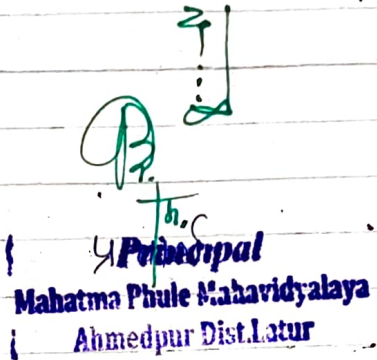 Principal
Mahatma Phule Mahavidyalaya
Ahmedpur Dist.Latur